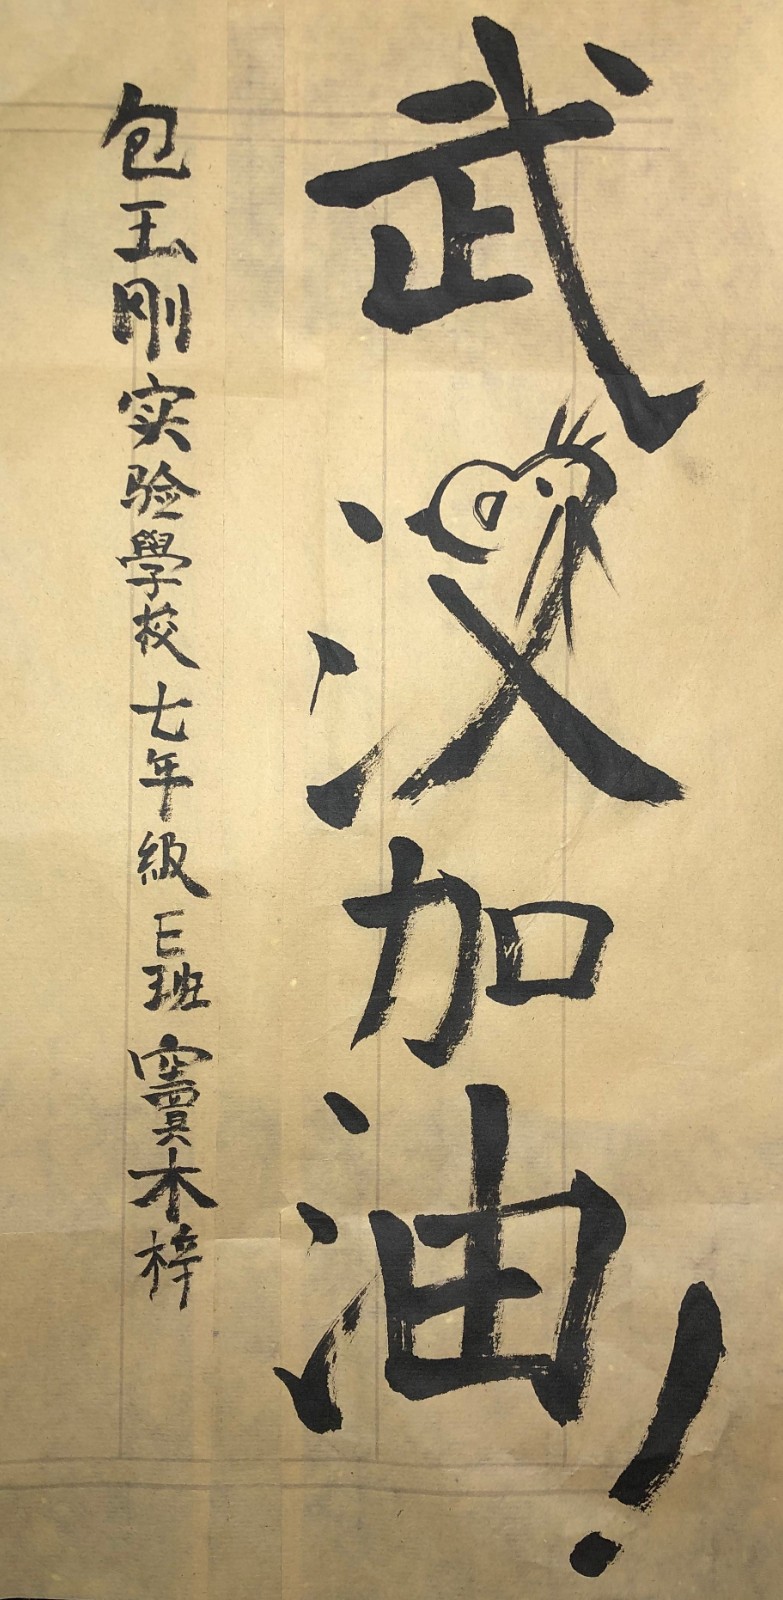 武汉加油！
包玉刚实验學校七年級E班窦木梓